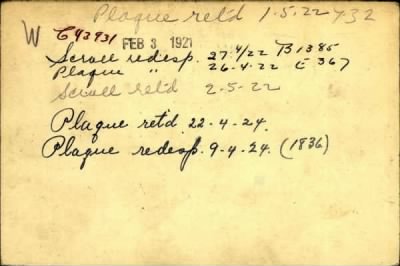 Plaque ret'd 1-5-22 732
W C43931 FEB 3 1921
Scroll redesp. 27/4/22 B1385
Plaque " 26-4-22 E 367
Scroll ret'd 2-5-22
Plaque ret'd 22-4-24.
Plaque redesp. 9-4-24. (1836)